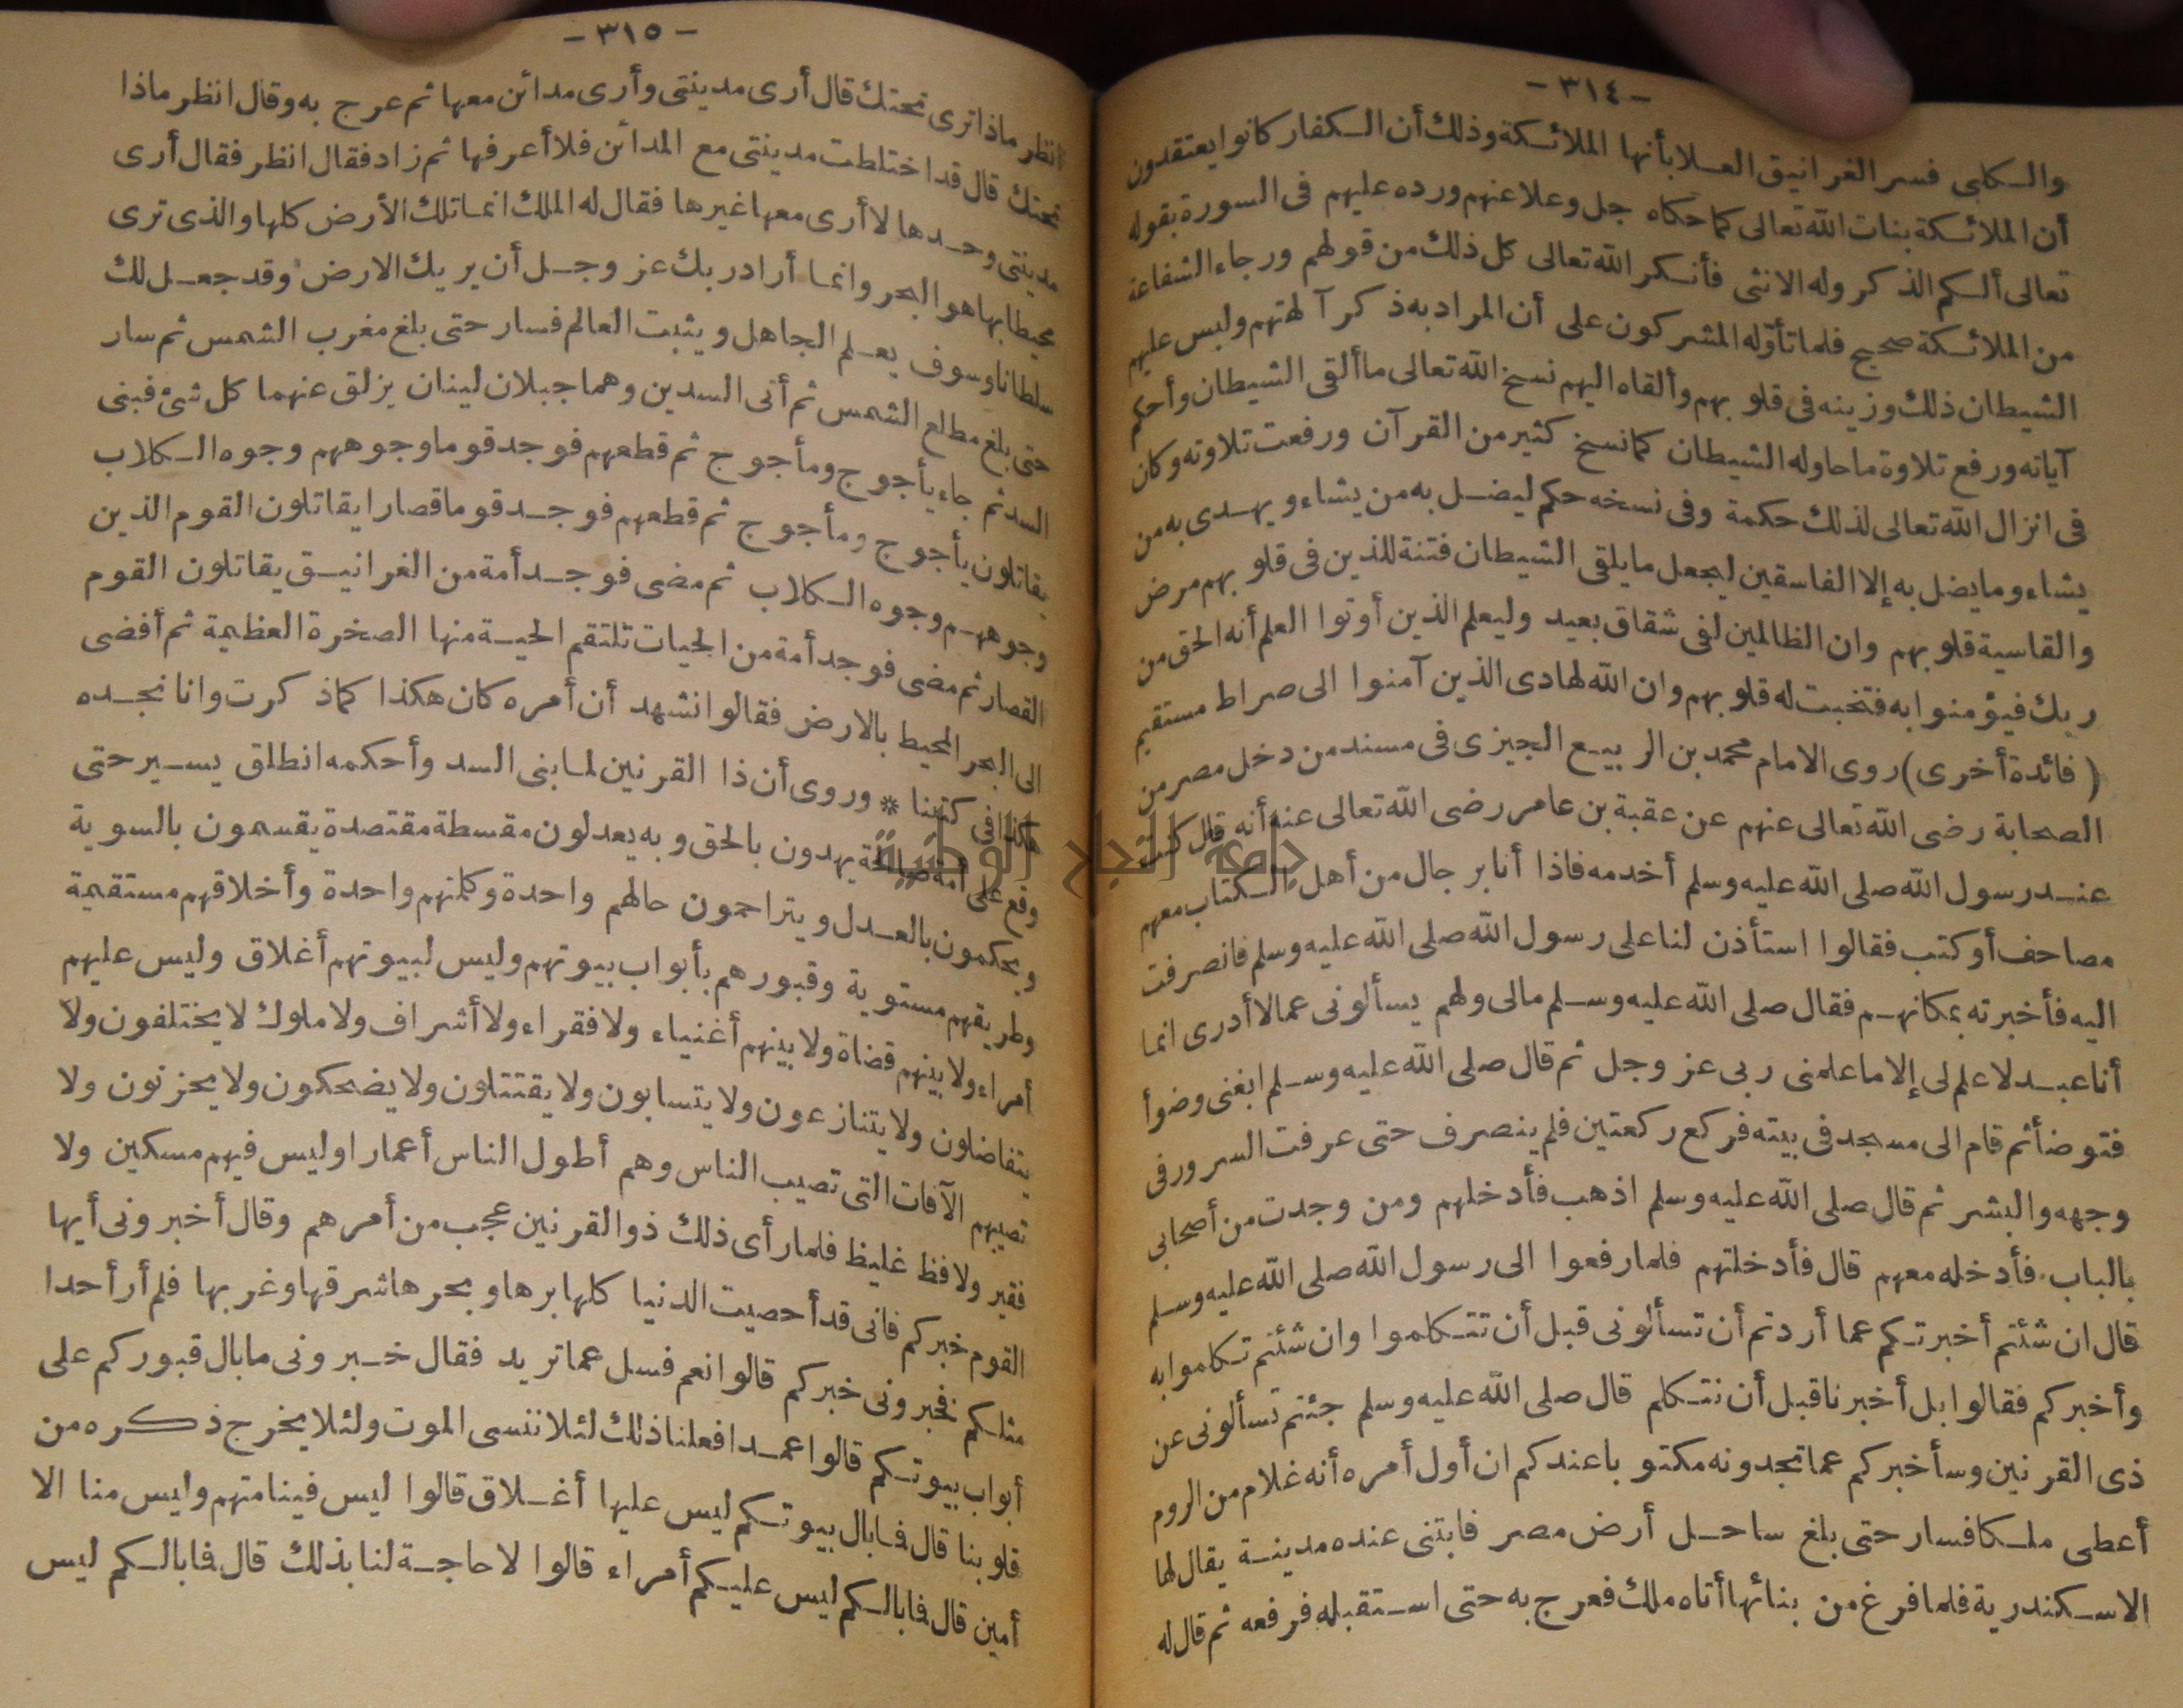 - ٣١٤ -
والكلبى فسر الغرانيق العلا بأنها الملائكة وذلك أن الكفار كانوا يعتقدون
أن الملائكة بنات الله تعالى كما حكاه جل وعلا عنهم ورده عليهم فى السورة بقوله
تعالى ألكم الذكر وله الانثى فأنكر الله تعالى كل ذلك من قولهم ورجاء الشفاعة
من الملائكة صحيح فلما تأوّله المشركون على أن المراد به ذكر آلهتهم ولبس عليهم
الشيطان ذلك وزينه فى قلوبهم وألقاه اليهم نسخ الله تعالى ما ألقى الشيطان وأحكم
آياته ورفع تلاوة ما حاوله الشيطان كما نسخ كثير من القرآن ورفعت تلاوته وكان
فى انزال الله تعالى لذلك حكمة وفى نسخه حكم ليضل به من يشاء ويهدى به من
يشاء وما يضل به إلا الفاسقين ليجعل ما يلقى الشيطان فتنة للذين فى قلوبهم مرض
والقاسية قلوبهم وان الظالمين لفى شقاق بعيد وليعلم الذين أوتوا العلم أنه الحق من
ربك فيؤمنوا به فتخبت له قلوبهم وان الله لهادى الذين آمنوا الى صراط مستقيم
(فائدة أخرى) روى الامام محمد بن الربيع الجيزى فى مسند من دخل مصر من
الصحابة رضى الله تعالى عنهم عن عقبة بن عامر رضى الله تعالى عنه أنه قال كنت
عند رسول الله صلى الله عليه وسلم أخدمه فاذا أنا برجال من أهل الكتاب معهم
مصاحف أو كتب فقالوا استأذن لنا على رسول الله صلى الله عليه وسلم فانصرفت
اليه فأخبرته بمكانهم فقال صلى الله عليه وسلم مالى ولهم يسألونى عما لا أدرى انما
أنا عبد لا علم لى إلا ما علمنى ربى عز وجل ثم قال صلى الله عليه وسلم ابغنى وضوأ
فتوضأ ثم قام الى مسجد فى بيته فركع ركعتين فلم ينصرف حتى عرفت السرور فى
وجهه والبشر ثم قال صلى الله عليه وسلم اذهب فأدخلهم ومن وجدت من أصحابى
بالباب فأدخله معهم قال فأدخلتهم فلما رفعوا الى رسول الله صلى الله عليه وسلم
قال ان شئتم أخبرتكم عما أردتم أن تسألونى قبل أن تتكلموا وان شئتم تكلموا به
وأخبركم فقالوا بل أخبرنا قبل أن نتكلم قال صلى الله عليه وسلم جئتم تسألونى عن
ذى القرنين وسأخبركم عما تجدونه مكتوبا عندكم ان أول أمره أنه غلام من الروم
أعطى ملكا فسار حتى بلغ ساحل أرض مصر فابتنى عنده مدينة يقال لها
الاسكندرية فلما فرغ من بنائها أتاه ملك فعرج به حتى استقبله فرفعه ثم قال له
- ٣١٥ -
انظر ماذا ترى تحتك قال أرى مدينتى وأرى مدائن معها ثم عرج به وقال انظر ماذا
تحتك قال قد اختلطت مدينتى مع المدائن فلا أعرفها ثم زاد فقال انظر فقال أرى
مدينتى وحدها لا أرى معها غيرها فقال له الملك انما تلك الأرض كلها والذى ترى
محيطا بها هو البحر وانما أراد ربك عز وجل أن يريك الارض وقد جعل لك
سلطانا وسوف يعلم الجاهل ويثبت العالم فسار حتى بلغ مغرب الشمس ثم سار
حتى بلغ مطلع الشمس ثم أتى السدين وهما جبلان لينان يزلق عنهما كل شئ فبنى
السد ثم جاء يأجوج ومأجوج ثم قطعهم فوجد قوما وجوههم وجوه الكلاب
يقاتلون يأجوج ومأجوج ثم قطعهم فوجد قوما قصارا يقاتلون القوم الذين
وجوههم وجوه الكلاب ثم مضى فوجد أمة من الغرانيق يقاتلون القوم
القصار ثم مضى فوجد أمة من الحيات تلتقم الحية منها الصخرة العظيمة ثم أفضى
الى البحر المحيط بالارض فقالوا نشهد أن أمره كان هكذا كما ذكرت وانا نجده
هكذا فى كتبنا * وروى أن ذا القرنين لما بنى السد وأحكمه انطلق يسير حتى
وقع على أمة صالحة يهدون بالحق وبه يعدلون مقسطة مقتصدة يقسمون بالسوية
ويحكمون بالعدل ويتراحمون حالهم واحدة وكلمتهم واحدة وأخلاقهم مستقيمة
وطريقهم مستوية وقبورهم بأبواب بيوتهم وليس لبيوتهم أغلاق وليس عليهم
أمراء ولا بينهم قضاة ولا بينهم أغنياء ولا فقراء ولا أشراف ولا ملوك لا يختلفون ولا
يتفاضلون ولا يتنازعون ولا يتسابون ولا يقتتلون ولا يضحكون ولا يحزنون ولا
تصيبهم الآفات التى تصيب الناس وهم أطول الناس أعمارا وليس فيهم مسكين ولا
فقير ولا فظ غليظ فلما رأى ذلك ذو القرنين عجب من أمرهم وقال أخبرونى أيها
القوم خبركم فانى قد أحصيت الدنيا كلها برها وبحرها شرقها وغربها فلم أر أحدا
مثلكم فخبرونى خبركم قالوا نعم فسل عما تريد فقال خبرونى ما بال قبوركم على
أبواب بيوتكم قالوا عمدا فعلنا ذلك لئلا ننسى الموت ولئلا يخرج ذكره من
قلوبنا قال فما بال بيوتكم ليس عليها أغلاق قالوا ليس فينا متهم وليس منا الا
أمين قال فما بالكم ليس عليكم أمراء قالوا لا حاجة لنا بذلك قال فما بالكم ليس
جامعة النجاح الوطنية